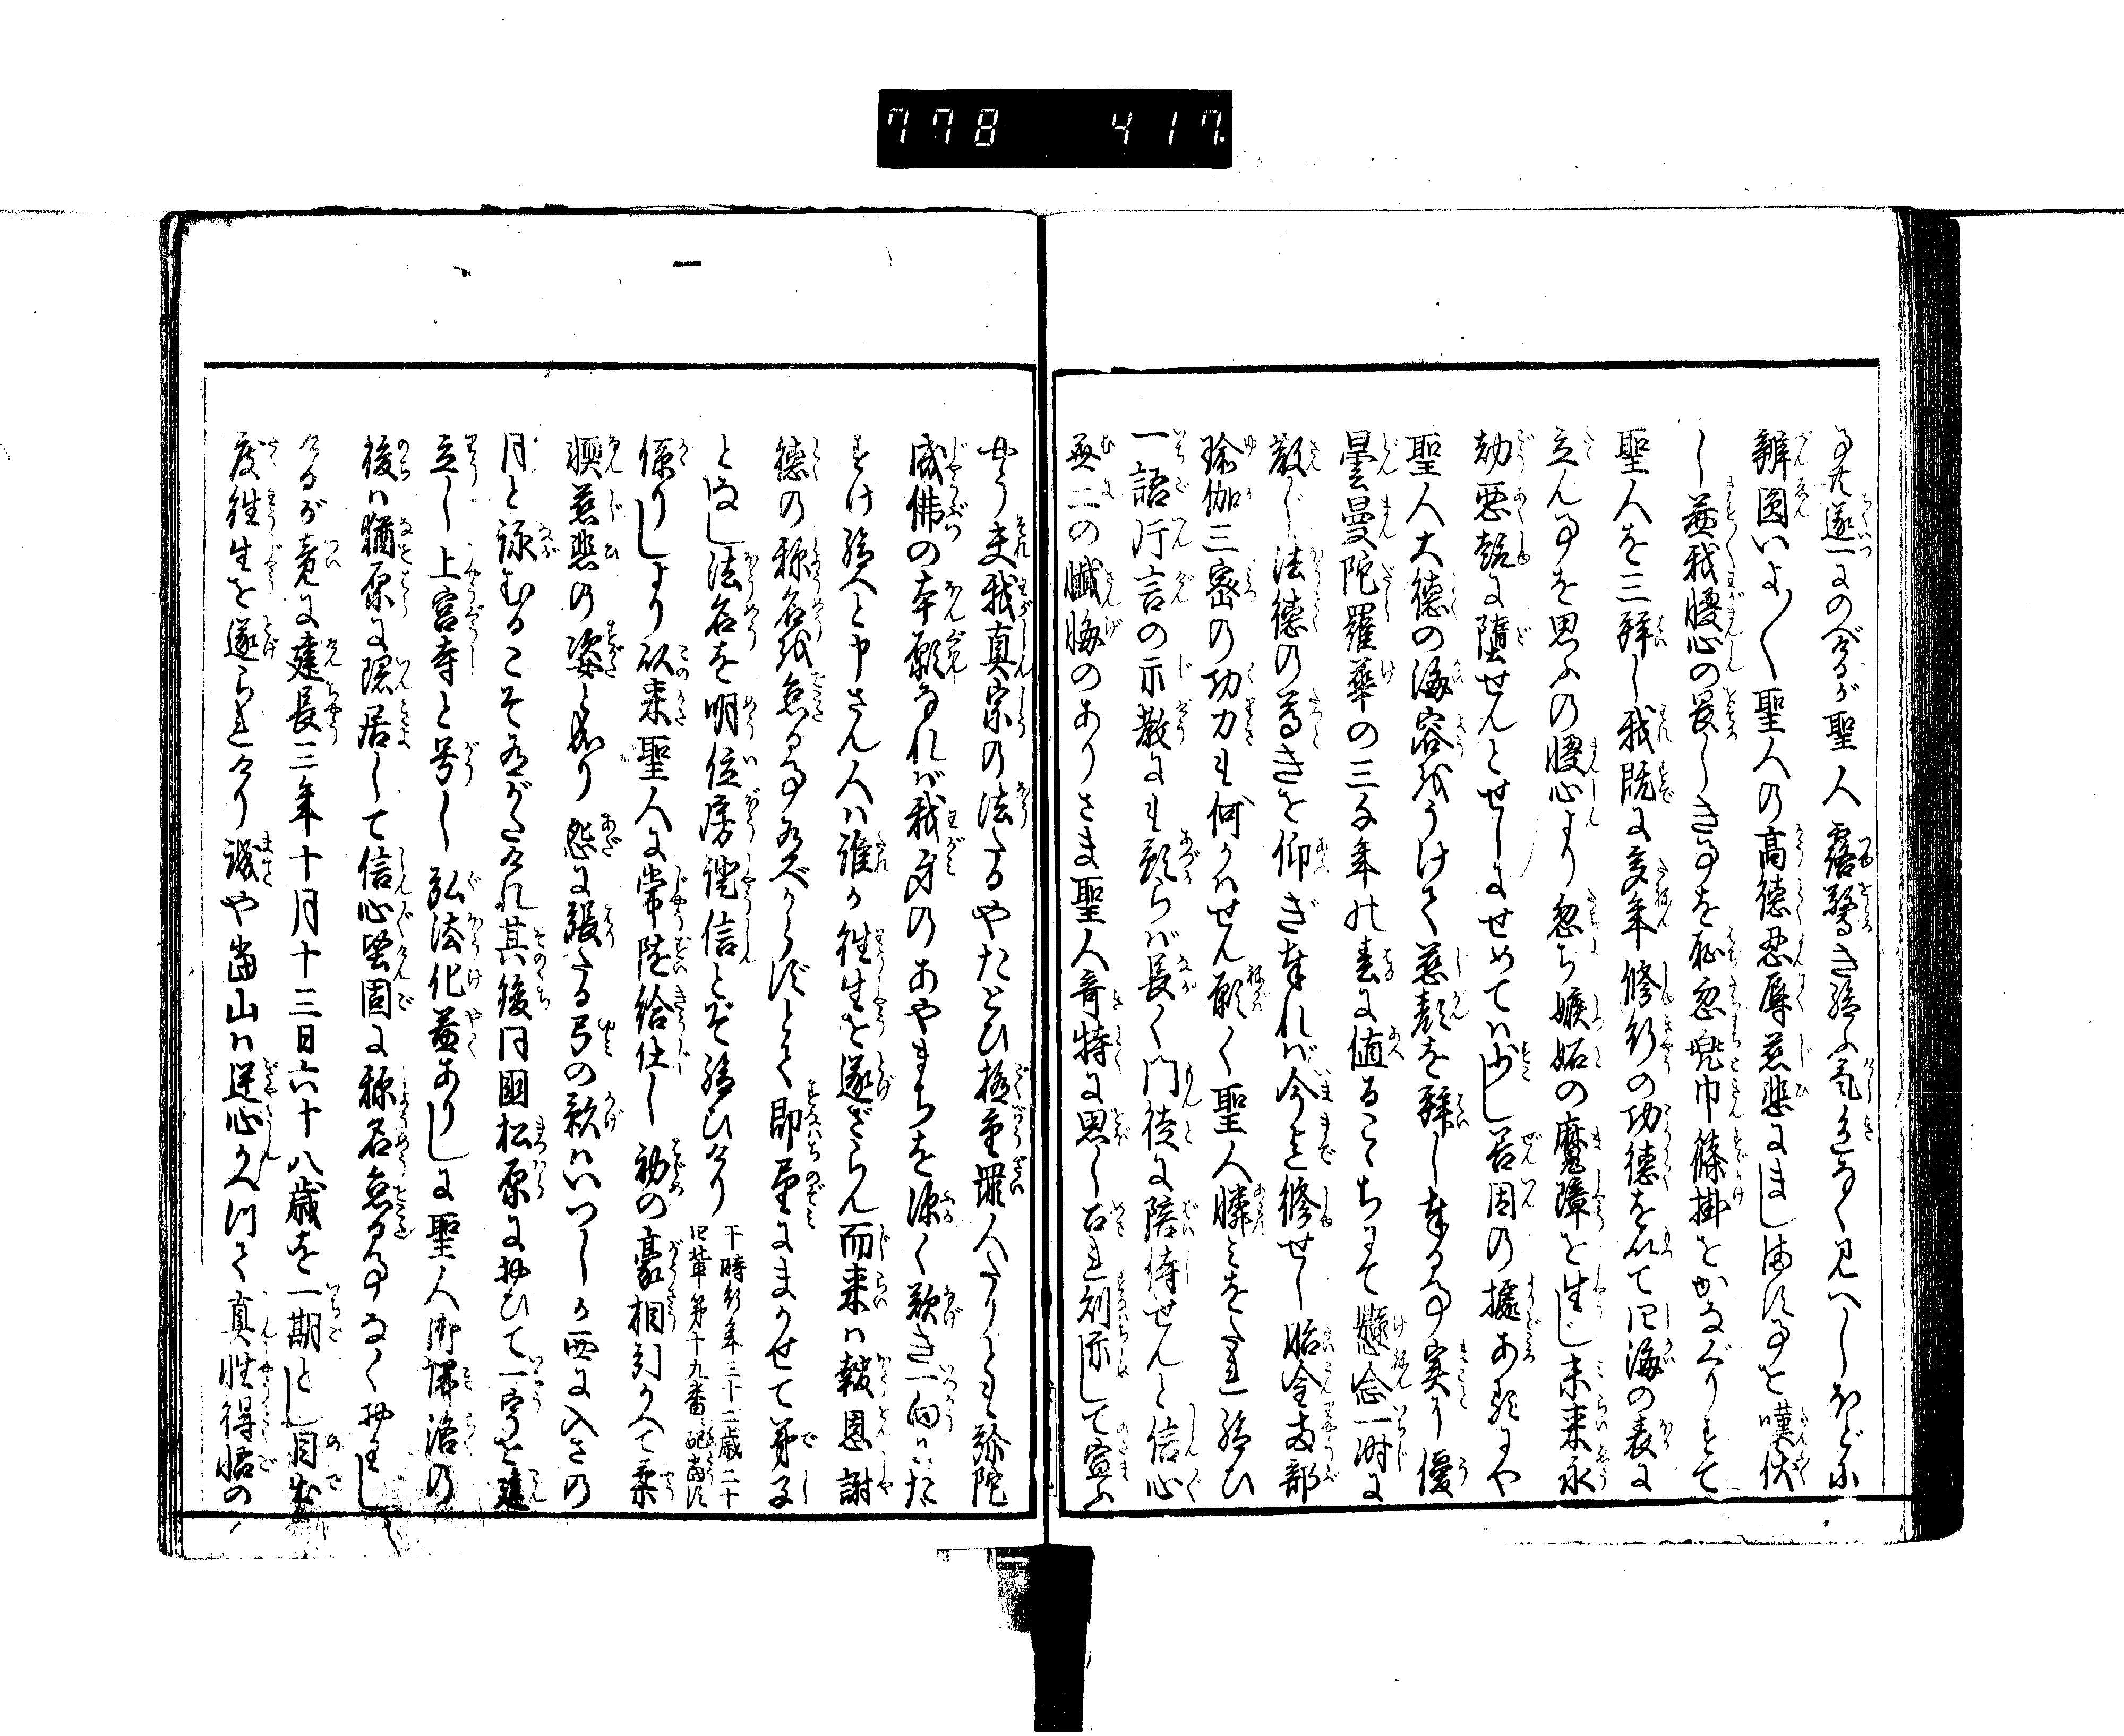 778 417.
事共逐一にのぶるが聖人露驚き給ふ気色なく見へしかバ
辨圓いよ〳〵聖人の高徳忍辱慈悲にまし満須事を嘆伏
し益我慢心の畏しき事を恥忽兜巾篠掛をかなぐりすて
聖人を三拝し我既に多年修行の功徳を以て四海の表に
立ん事を思ふの慢心より忽ち嫉妬の魔障を生じ未来永
劫悪趣に堕せんとせしにせめてハ少し善因の據あるにや
聖人大徳の海容をうけて慈顔を拝し奉る事実に優
曇曼陀羅華の三千年の春に値るこゝちにて懸念一時に
散じ法徳の尊きを仰ぎ奉れバ今迄修せし胎金両部
瑜伽三密の功力も何かハせん願くハ聖人憐みをたれ給ひ
一語片言の示教にも預らバ長く門徒に陪侍せんと信心
無二の懺悔のありさま聖人奇特に思し召れ則示して宣ふ
やう夫我真宗の法たるやたとひ極重罪人たりとも弥陀
成佛の本願なれバ我身のあやまちを深く歎き一向にた
すけ給へと申さん人ハ誰か往生を遂ざらん而来ハ報恩謝
徳の称名を怠る事有べからずとて即望にまかせて弟子
となし法名を明法房證信とぞ給ひけり 于時行年三十二歳二十四輩第十九番に配当す
係りしより以来聖人に常随給仕し初の豪相引かへて柔
輭慈悲の姿と成り 怨に張たる弓の影ハいつしか西に入さの
月と詠むるこそ有がたけれ其後同国松原に於ひて一宇を建
立し上宮寺と号し弘法化益ありしに聖人御帰洛の
後ハ猶原に隠居して信心堅固に称名怠る事なくおハし
けるが竟に建長三年十月十三日六十八歳を一期とし目出
度往生を遂られけり誠や當山ハ逆心かへつて真性得悟の